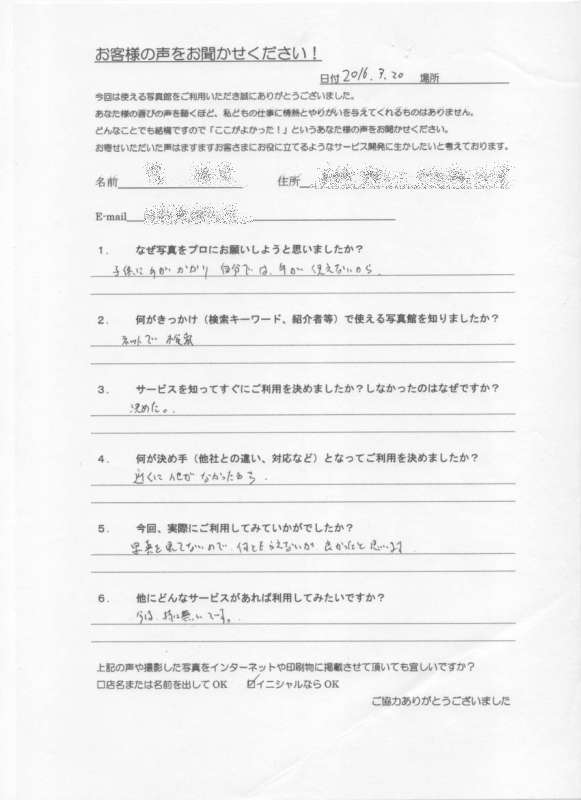 お客様の声をお聞かせください！
日付 2016.3.20 場所
今回は使える写真館をご利用いただき誠にありがとうございました。
あなた様の喜びの声を聴くほど、私どもの仕事に情熱とやりがいを与えてくれるものはありません。
どんなことでも結構ですので「ここがよかった！」というあなた様の声をお聞かせください。
お寄せいただいた声はますますお客さまにお役に立てるようなサービス開発に生かしたいと考えております。
名前 住所
E-mail
1． なぜ写真をプロにお願いしようと思いましたか？
子供に手がかかり 自分では 手が 使えないから.
2． 何がきっかけ（検索キーワード、紹介者等）で使える写真館を知りましたか？
ネットで 検索
3． サービスを知ってすぐにご利用を決めましたか？しなかったのはなぜですか？
決めた。
4． 何が決め手（他社との違い、対応など）となってご利用を決めましたか？
近くに 他が なかったから.
5． 今回、実際にご利用してみていかがでしたか？
写真を見てないので 何とも言えないが 良かったと思います
6． 他にどんなサービスがあれば利用してみたいですか？
今は 特に無いです。
上記の声や撮影した写真をインターネットや印刷物に掲載させて頂いても宜しいですか？
□店名または名前を出して OK ☑イニシャルなら OK
ご協力ありがとうございました